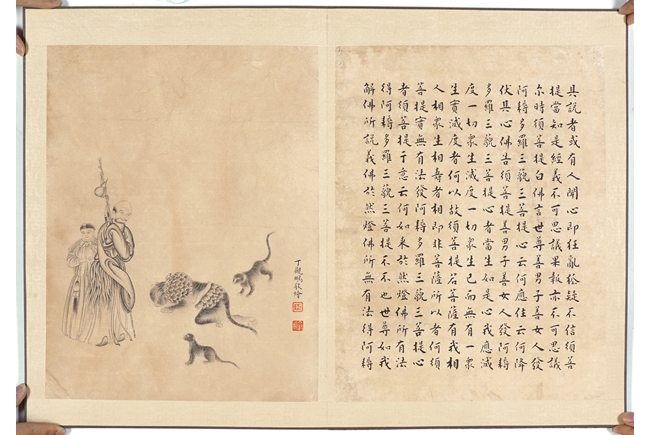 具說者或有人聞心即狂亂狐疑不信須菩
提當知是經義不可思議果報亦不可思議
尒時須菩提白佛言世尊善男子善女人發
阿耨多羅三藐三菩提心云何應住云何降
伏其心佛告須菩提善男子善女人發阿耨
多羅三藐三菩提心者當生如是心我應滅
度一切眾生滅度一切眾生已而無有一眾
生實滅度者何以故須菩提若菩薩有我相
人相眾生相壽者相即非菩薩所以者何須
菩提實無有法發阿耨多羅三藐三菩提
者須菩提于意云何如來於然燈佛所有法
得阿耨多羅三藐三菩提不不也世尊如我
解佛所說義佛於然燈佛所無有法得阿耨
丁觀鵬敬繪